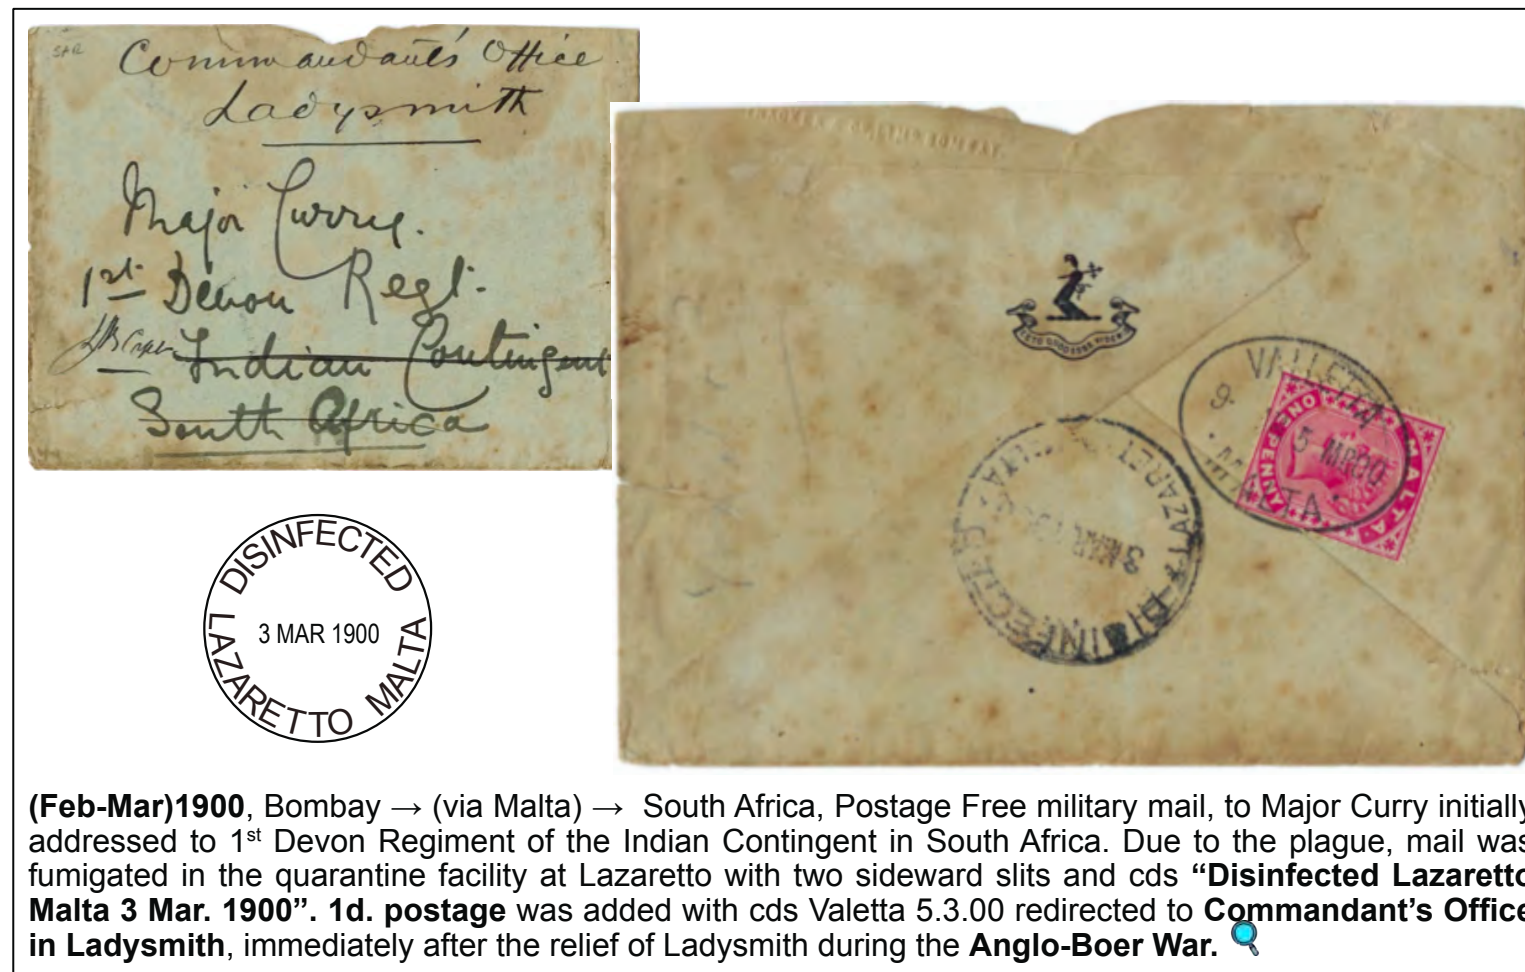 Commandant's Office
Ladysmith
Major Curry.
1st Devon Regt.
Indian Contingent
South Africa
VALLETTA
5 MR 00
MALTA
MALTA
ONE PENNY
DISINFECTED
LAZARET
3 MAR
DISINFECTED
3 MAR 1900
LAZARETTO MALTA
(Feb-Mar)1900, Bombay → (via Malta) → South Africa, Postage Free military mail, to Major Curry initially
addressed to 1st Devon Regiment of the Indian Contingent in South Africa. Due to the plague, mail was
fumigated in the quarantine facility at Lazaretto with two sideward slits and cds “Disinfected Lazaretto
Malta 3 Mar. 1900”. 1d. postage was added with cds Valetta 5.3.00 redirected to Commandant’s Office
in Ladysmith, immediately after the relief of Ladysmith during the Anglo-Boer War.